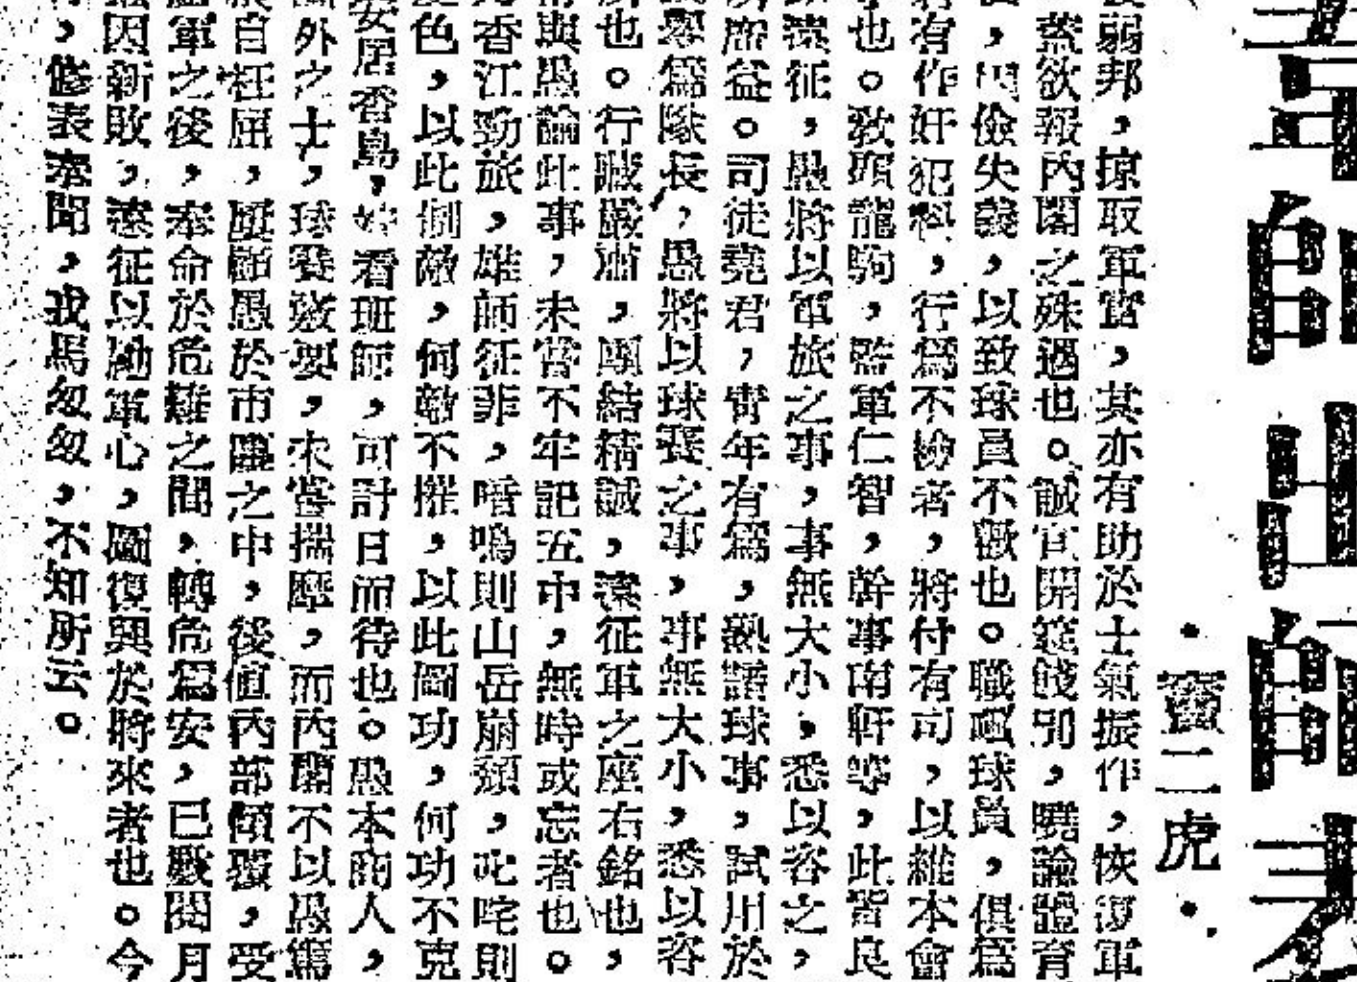 寶二虎
弱邦，掠取軍實，其亦有助於士氣振作，恢復軍
蓋欲報內閣之殊遇也。誠宜開筵餞別，曉諭體育
，因儉失義，以致球員不歡也。職球員，俱為
有作奸犯科，行為不檢者，將付有司，以維本會
也。敎頭龍駒，監軍仁智，幹事南軒等，此皆良
遠征，愚將以軍旅之事，事無大小，悉以咨之，
益。司徒堯君，靑年有爲，熟諳球事，試用於
舉爲隊長，愚將以球賽之事，事無大小，悉以咨
也。行嚴肅，團結精誠，遠征軍之座右銘也，
與愚論此事，未嘗不牢記五中，無時或忘者也。
香江勁旅，雄師征菲，喑鳴則山岳崩頹，叱咤則
色，以此制敵，何敵不摧，以此圖功，何功不克
安居香島，看班師，可計日而待也。愚本商人，
外之士，球賽要，未嘗揣摩，而內閣不以愚
自枉屈，顧愚於市廛之中，後值內部傾覆，受
軍之後，奉命於危難之間，轉危爲安，已數閱月
因新敗，遠征以勵軍心，圖復興於將來者也。今
，修表奏聞，戎馬匆匆，不知所云。